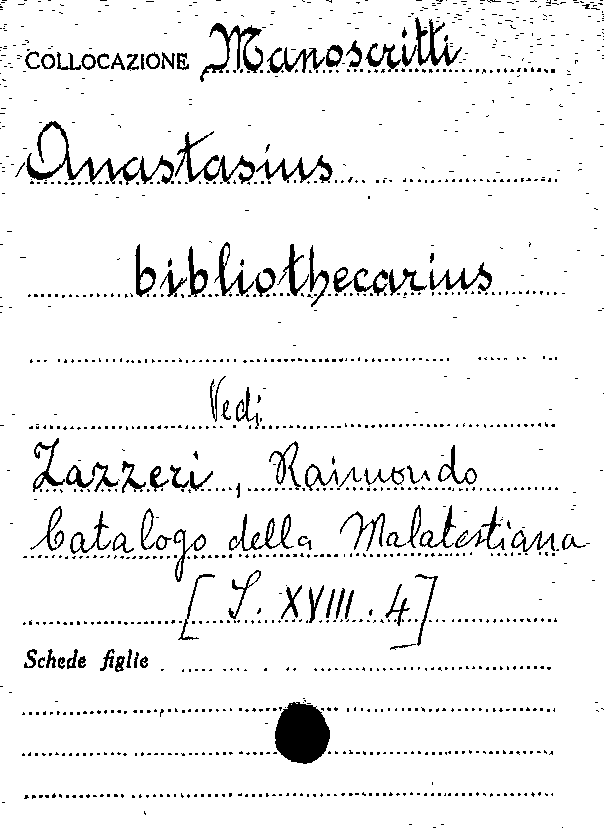 COLLOCAZIONE Manoscritti
Anastasius
bibliothecarius
Vedi
Zazzeri, Raimondo
Catalogo della Malatestiana
[S. XVIII. 4]
Schede figlie